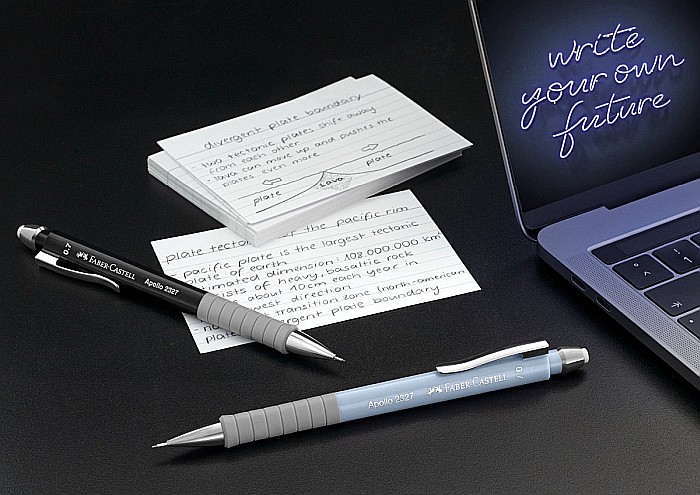 write
your own
future
divergent plate boundary
- two tectonic plates shift away
from each other
- lava can move up and pushes the
plates even more
plate
Lava
plate
plate of the pacific rim
pacific plate is the largest tectonic
plate of earth
dimension: 108.000.000 km²
of heavy, basaltic rock
about 10cm each year in
direction
transition zone (north-american
plate boundary
0.7
FABER-CASTELL
Apollo 2327
Apollo 2327
FABER-CASTELL
0.7